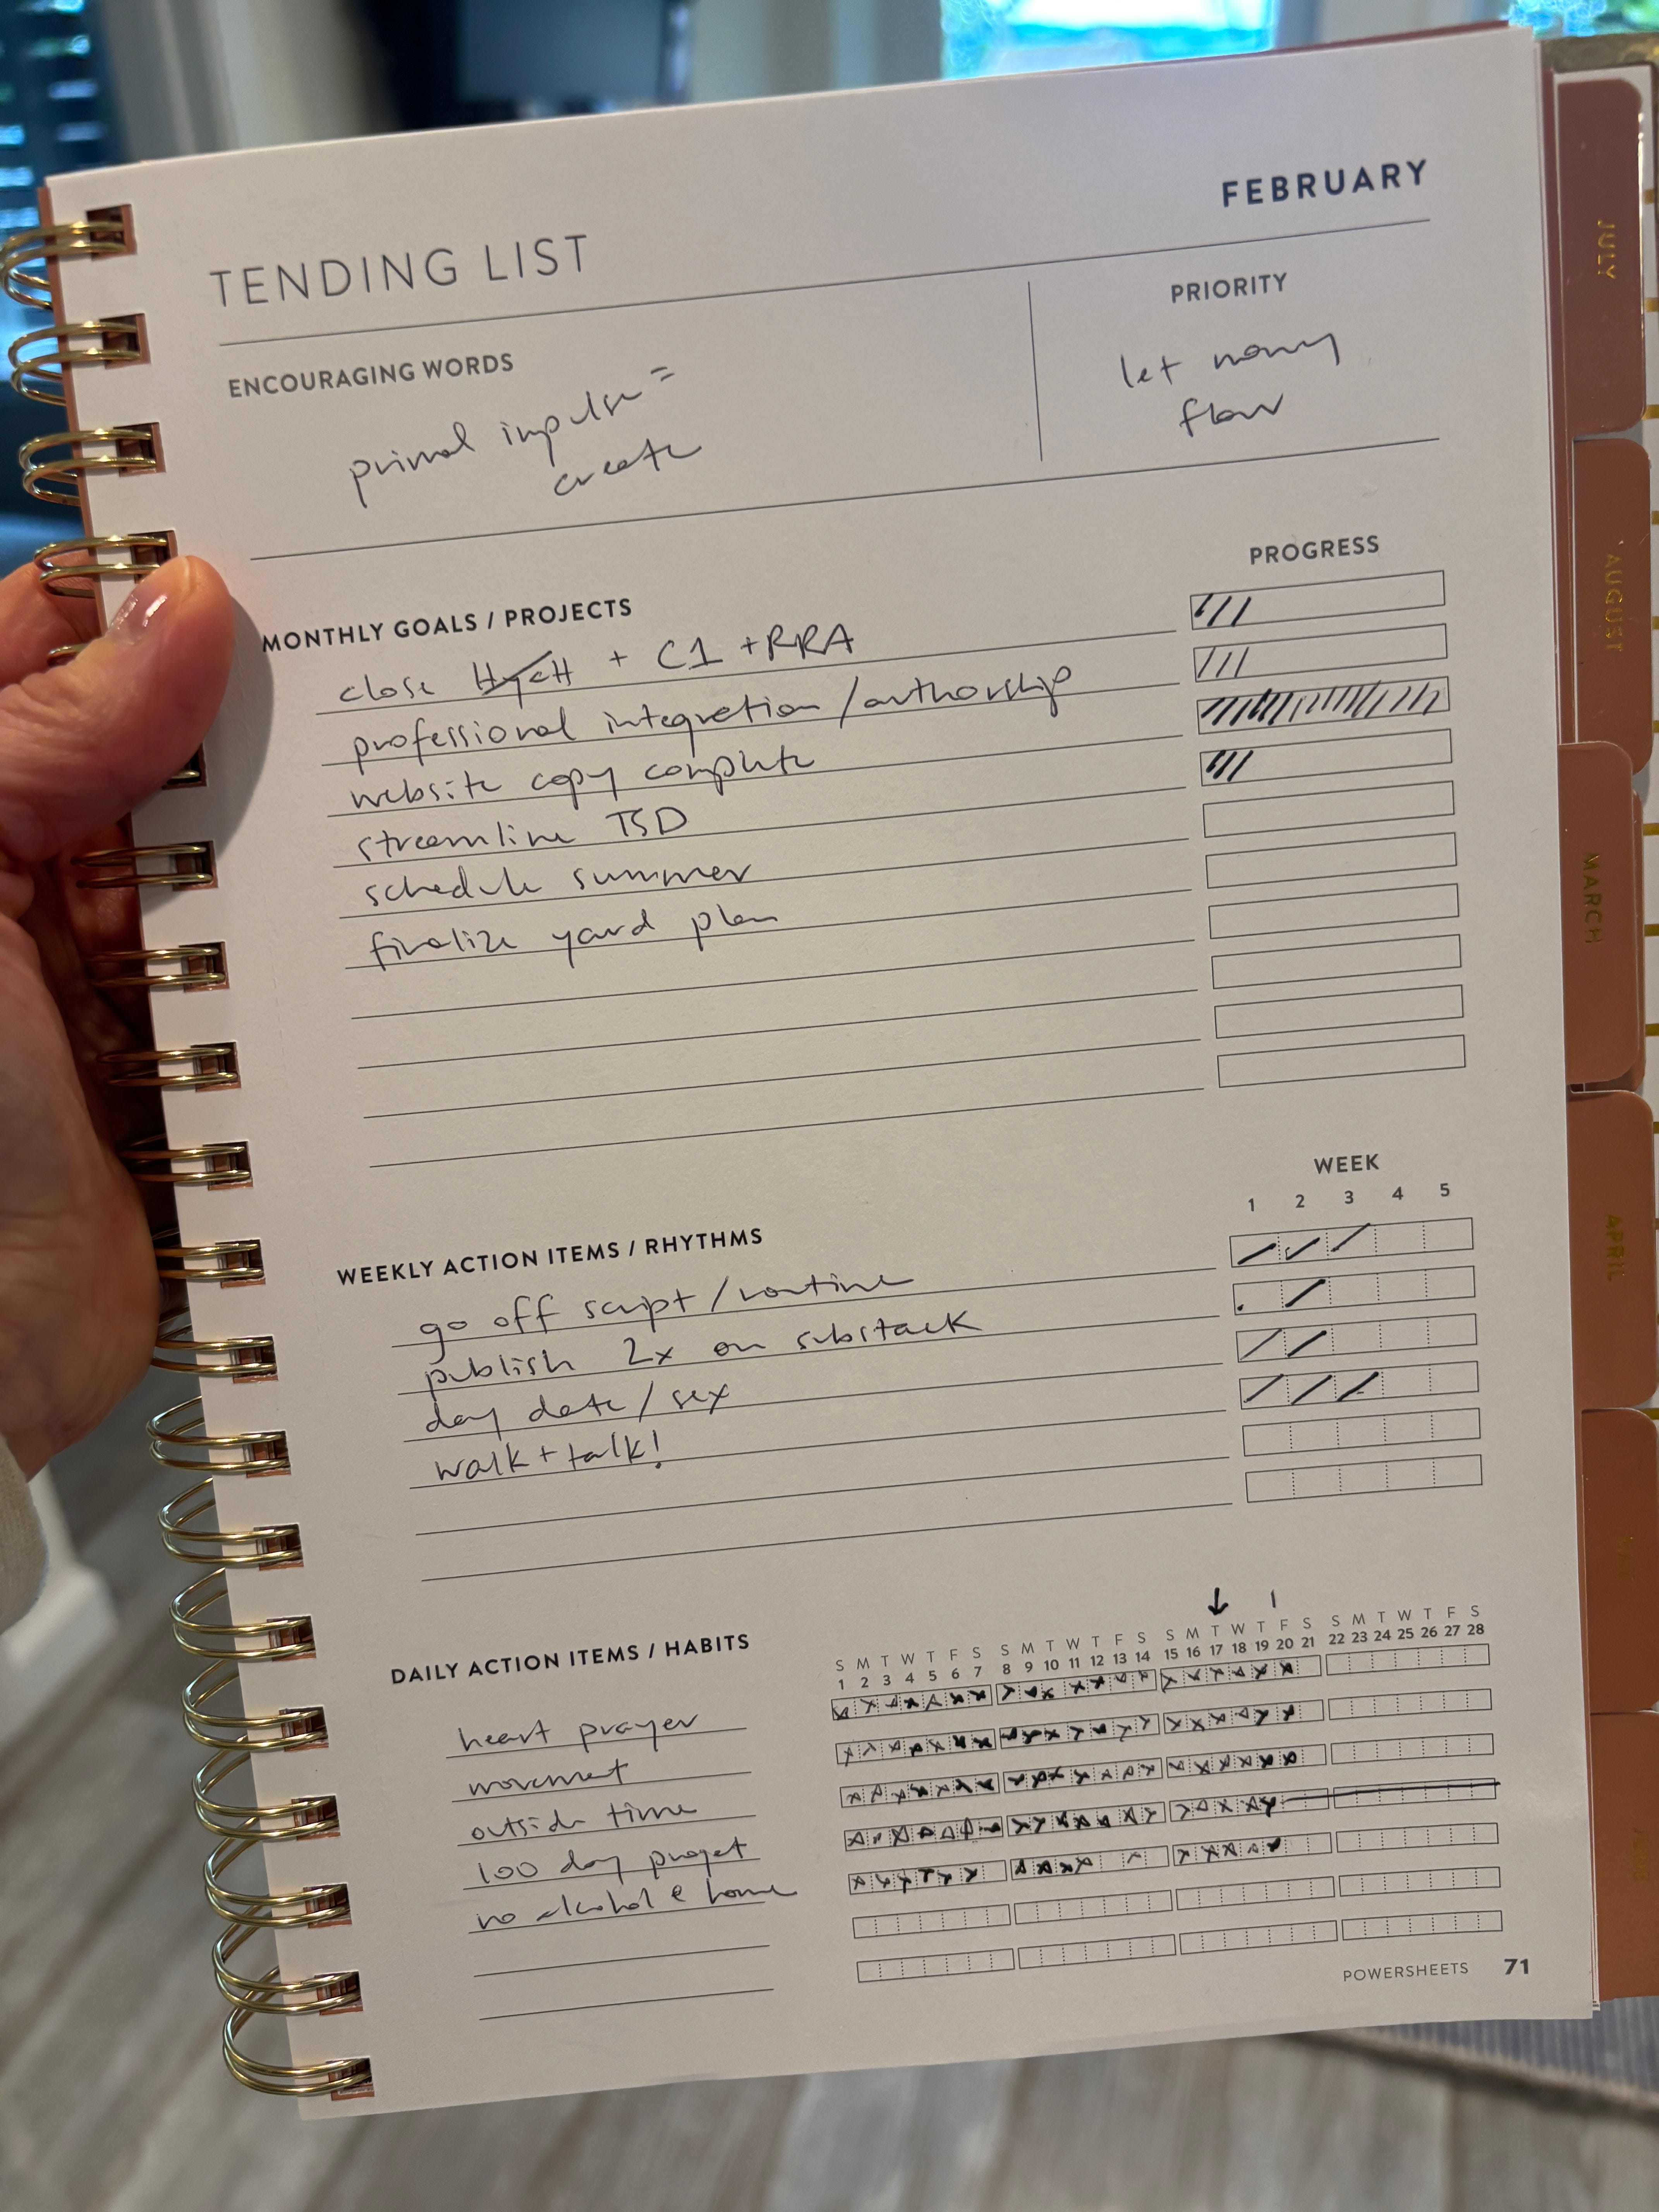 FEBRUARY
TENDING LIST
ENCOURAGING WORDS
primal impulse =
create
PRIORITY
let money
flow
MONTHLY GOALS / PROJECTS
PROGRESS
close + C1 + RRA
professional integration / authorship
website copy complete
streamline TSD
schedule summer
finalize yard plan
WEEKLY ACTION ITEMS / RHYTHMS
WEEK
1 2 3 4 5
go off script / routine
publish 2x on substack
day date / sex
walk + talk!
DAILY ACTION ITEMS / HABITS
S M T W T F S S M T W T F S S M T W T F S S M T W T F S
1 2 3 4 5 6 7 8 9 10 11 12 13 14 15 16 17 18 19 20 21 22 23 24 25 26 27 28
heart prayer
movement
outside time
100 day project
no alcohol @ home
POWERSHEETS 71
JULY
AUGUST
MARCH
APRIL